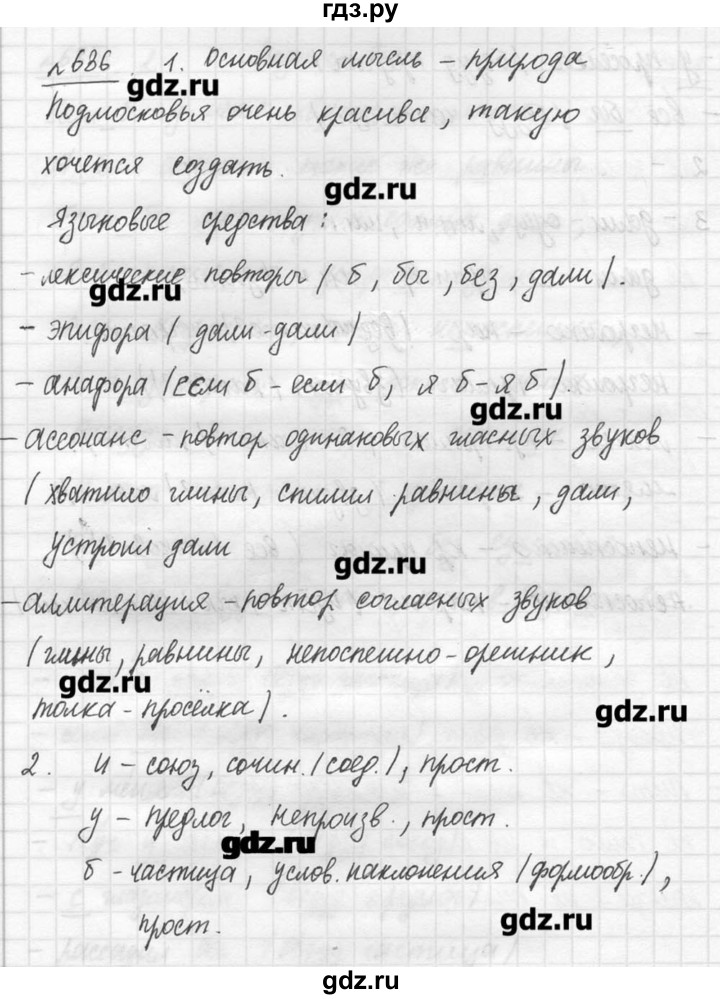 гдз.ру
№686. 1. Основная мысль – природа
gdz.ru
Подмосковья очень красива, такую
хочется создать.
gdz.ru
Языковые средства:
– лексические повторы (б, бы, без, дали).
gdz.ru
– эпифора (дали-дали)
– анафора (если б – если б, я б – я б)
gdz.ru
– ассонанс – повтор одинаковых гласных звуков
(хватило глины, слепил равнины, дали,
устроил дали
gdz.ru
– аллитерация – повтор согласных звуков
(глины, равнины, непоспешно – орешник,
gdz.ru
толка – просёлка).
gdz.ru
2. И – союз, сочин. (соед.), прост.
у – предлог, непроизв., прост.
gdz.ru
б – частица, услов. наклонения (формообр.),
прост.
gdz.ru
gdz.ru